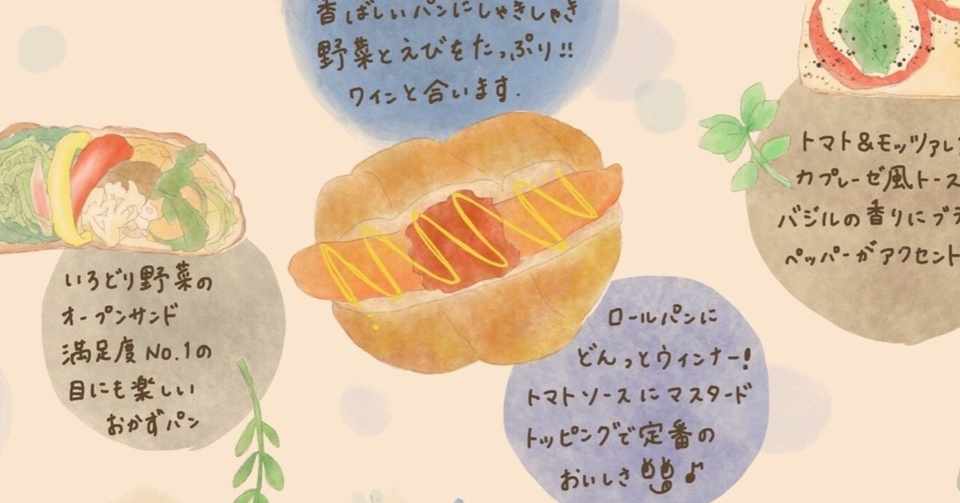 香ばしいパンにしゃきしゃき
野菜とえびをたっぷり!!
ワインと合います.
いろどり野菜の
オープンサンド
満足度No.1の
目にも楽しい
おかずパン
ロールパンに
どんっとウィンナー!
トマトソースにマスタード
トッピングで定番の
おいしさ♪
トマト&モッツァレ
カプレーゼ風トース
バジルの香りにブラ
ペッパーがアクセント